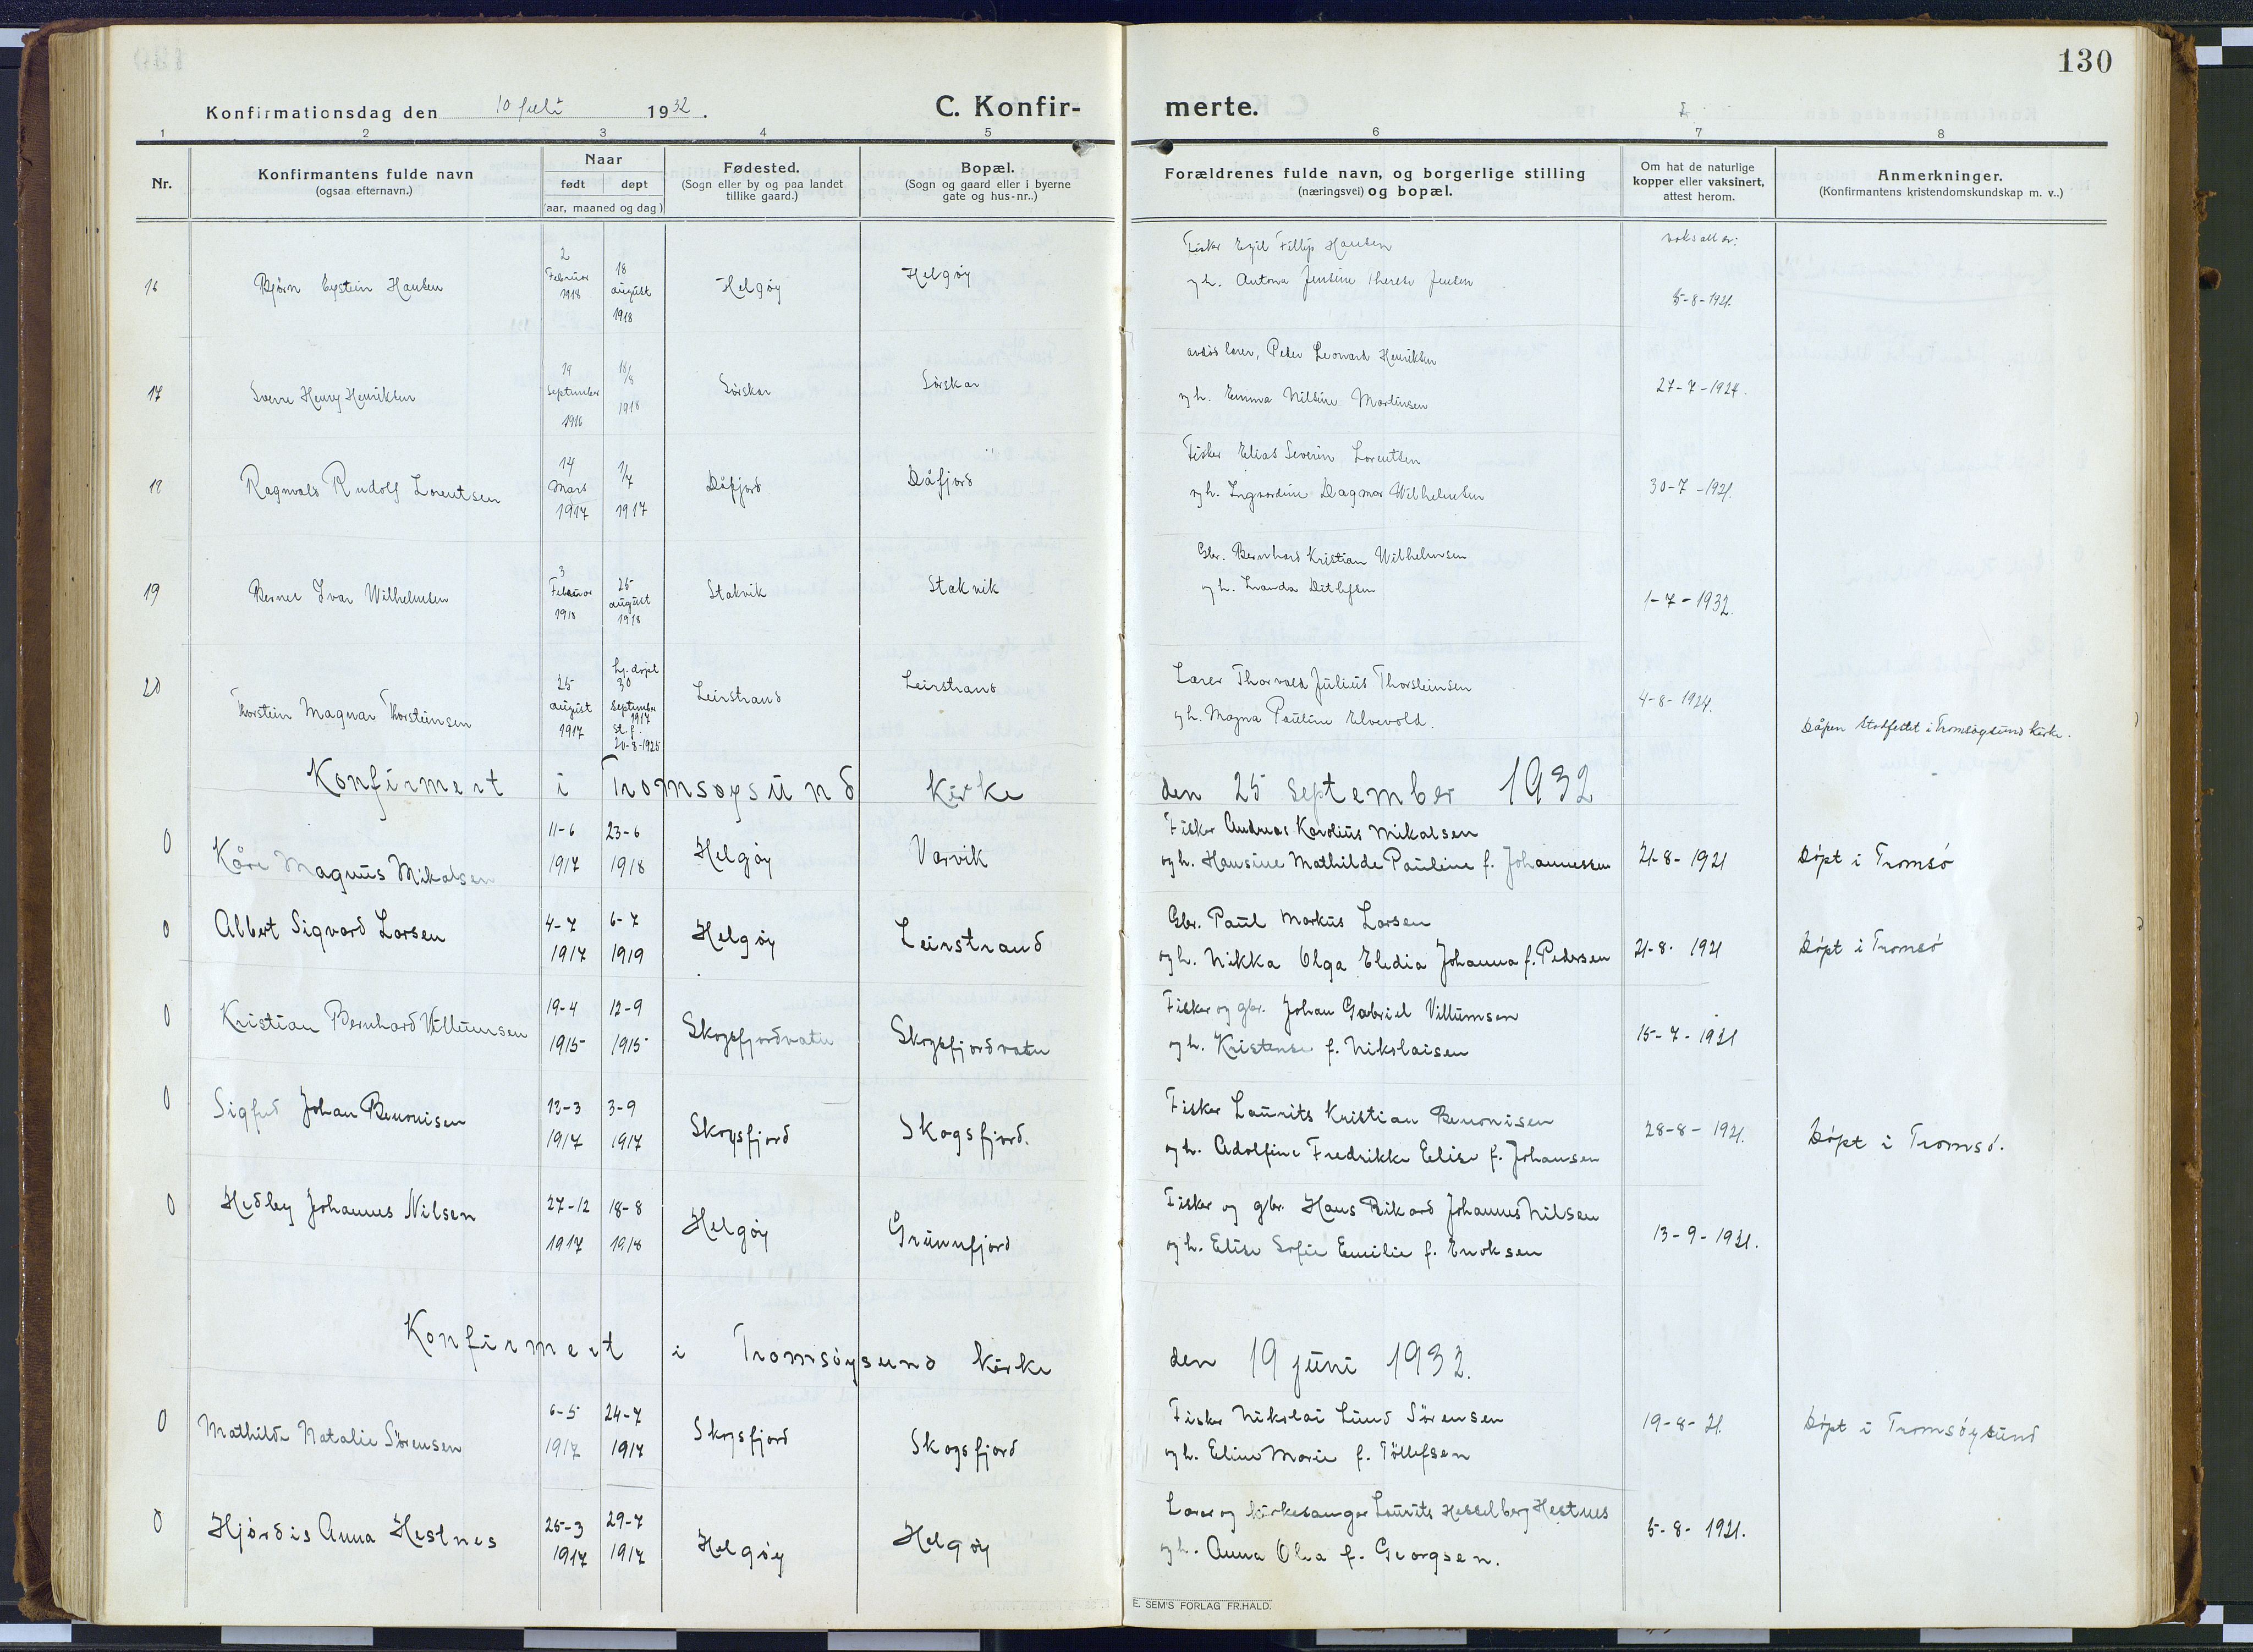 130
Konfirmationsdag den 10 juli 1932.
C. Konfir-
merte.
1 2 3 4 5 6 7 8
Nr.
Konfirmantens fulde navn
(ogsaa efternavn.)
Naar
født døpt
(aar, maaned og dag)
Fødested.
(Sogn eller by og paa landet
tillike gaard.)
Bopæl.
(Sogn og gaard eller i byerne
gate og hus-nr..)
Forældrenes fulde navn, og borgerlige stilling
(næringsvei) og bopæl.
Om hat de naturlige
kopper eller vaksinert,
attest herom.
Anmerkninger.
(Konfirmantens kristendomskundskap m. v..)
16 Bjørn Eystein Hansen
2 Februar 1918
18 august 1918
Helgøy
Helgøy
Fisker Egil Fillip Hansen
og h. Antona Jensine Therese Jensen
5-8-1921.
17 Sverre Henry Henriksen
19 september 1916
18/8 1918
Sörskar
Sörskar
Peder Leonard Henriksen
og h. Emma Nilsine Martinsen
27-7-1924.
18 Ragnvald Rudolf Lorentsen
14 Mars 1917
1/7 1917
Dåfjord
Dåfjord
Fisker Elias Severin Lorentsen
og h. Ingvardine Dagmar Wilhelmsen
30-7-1921.
19 Berner Ivar Wilhelmsen
3 Februar 1918
25 august 1918
Stakvik
Stakvik
Gbr. Bernhard Kristian Wilhelmsen
og h. Lvanda Ditlefsen
1-7-1932.
20 Thorstein Magnar Thorsteinsen
25 august 1917
hj. døpt 30 september 1917 st. f. 20-8-1925
Leirstrand
Leirstrand
Lærer Thorvald Julius Thorsteinsen
og h. Magna Pauline Elvevold.
4-8-1924.
Dåpen stadfestet i Tromsøysund kirke.
Konfirmert i Tromsøysund Kirke den 25 september 1932
0 Kåre Magnus Mikalsen
11-6 1917
23-6 1918
Helgøy
Varvik
Fisker Andreas Karolius Mikalsen
og h. Hansine Mathilde Pauline f. Johannessen
21-8-1921
Döpt i Tromsö
0 Albert Sigvard Larsen
4-7 1917
6-7 1919
Helgøy
Leirstrand
Gbr. Paul Markus Larsen
og h. Nikka Olga Elidia Johanna f. Pedersen
21-8-1921
Döpt i Tromsö
0 Kristian Bernhard Villumsen
19-4 1915
12-9 1915
Skogsfjordvatn
Skogsfjordvatn
Fisker og gbr. Johan Gabriel Villumsen
og h. Kristense f. Nikolaisen
15-7-1921
0 Sigfred Johan Benonisen
13-3 1917
3-9 1917
Skogsfjord
Skogsfjord.
Fisker Laurits Kristian Benonisen
og h. Adolfine Fredrikke Elise f. Johansen
28-8-1921.
Döpt i Tromsö.
0 Hedley Johannes Nilsen
27-12 1917
18-8 1918
Helgøy
Grunnfjord
Fisker og gbr. Hans Rikard Johannes Nilsen
og h. Elise Sofie Emilie f. Enoksen
13-9-1921.
Konfirmert i Tromsöysund Kirke den 19 juni 1932.
0 Mathilde Natalie Sörensen
6-5 1917
24-7 1917
Skogsfjord
Skogsfjord
Fisker Nikolai Lund Sörensen
og h. Eline Marie f. Töllefsen
19-8-21.
Döpt i Tromsöysund
0 Hjördis Anna Hestnes
25-3 1917
29-7 1917
Helgøy
Helgøy
Lærer og kirkesanger Laurits Hesselberg Hestnes
og h. Anna Olea f. Georgsen.
5-8-1921.
E. SEM'S FORLAG FR.HALD.